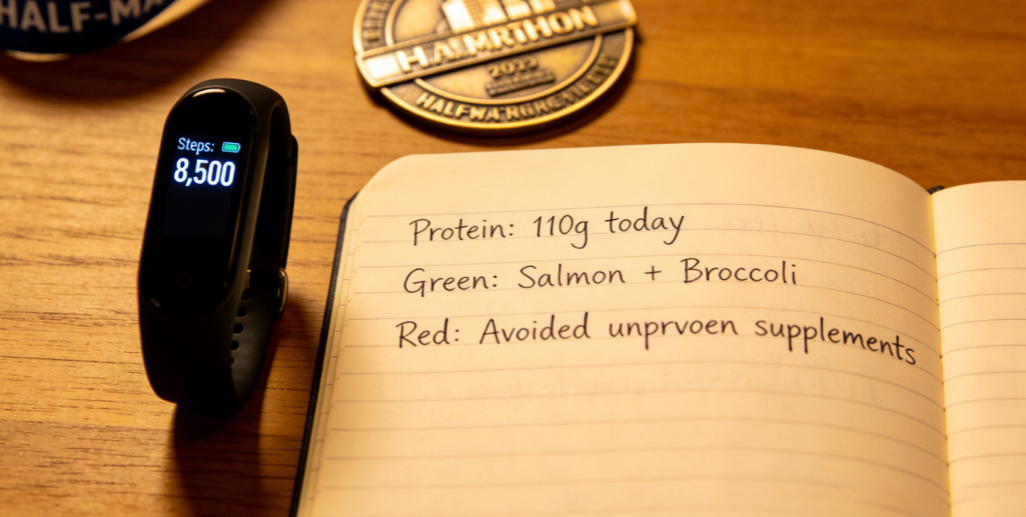 HALF-MA
HAMRTHON
2023
Steps:
8,500
Protein: 110g today
Green: Salmon + Broccoli
Red: Avoided unprvoen supplements